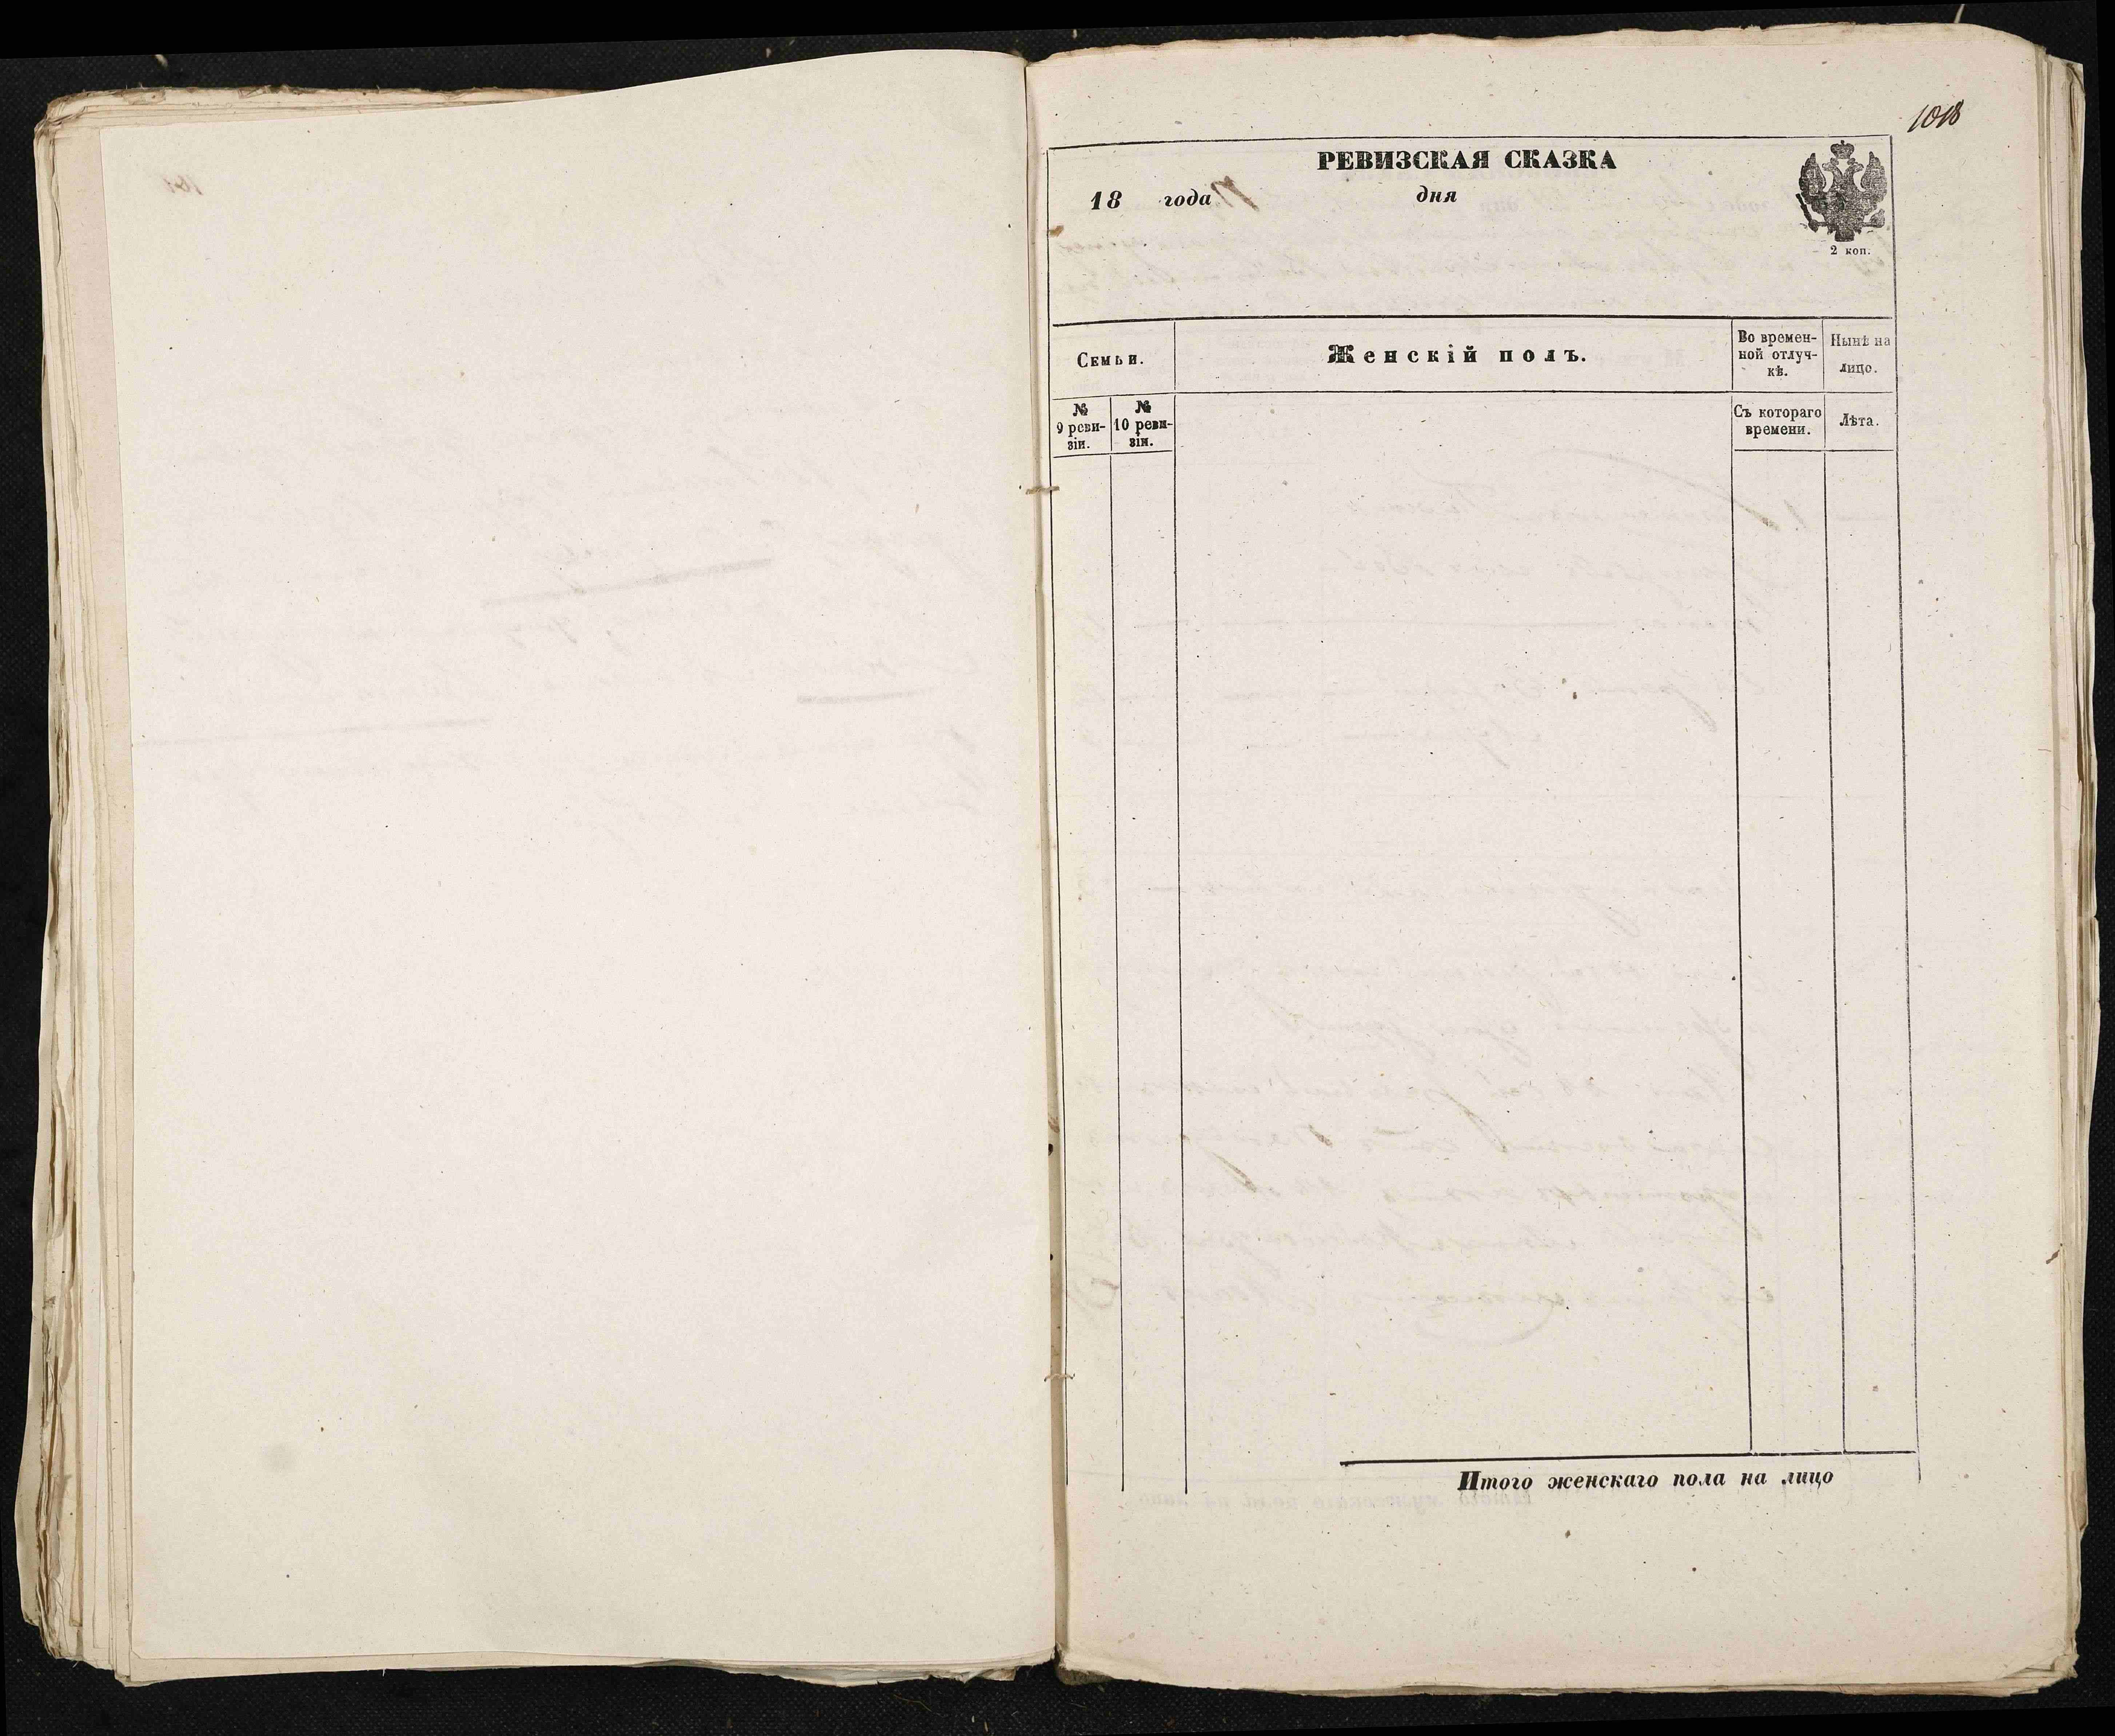 1018
РЕВИЗСКАЯ СКАЗКА
18 года дня
2 коп.
Семьи.
Женскій полъ.
Во времен-
ной отлуч-
кѣ.
Нынѣ на
лицо.
№
9 реви-
зіи.
№
10 реви-
зіи.
Съ котораго
времени.
Лѣта.
Итого женскаго пола на лицо